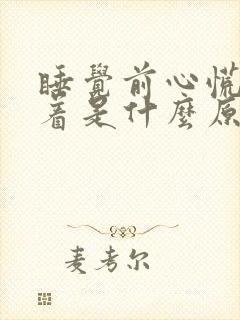 睡覺前心慌
着是什麼原
麦考尔